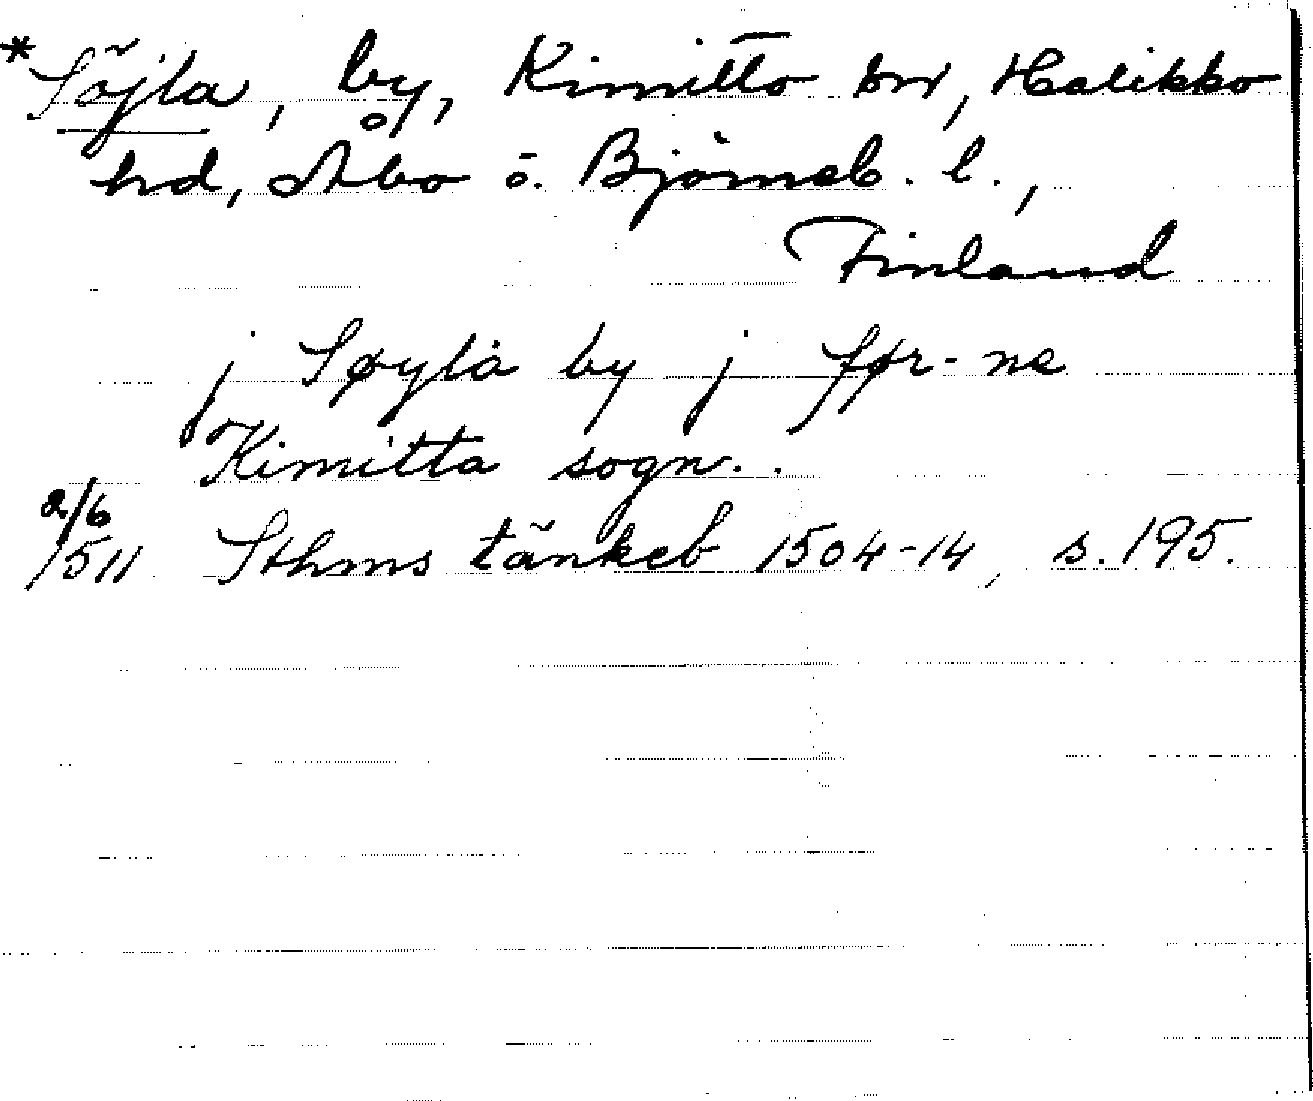 *Söjla, by, Kimitto sn, Halikko
hd, Åbo o. Björneb. l.,
Finland
j Søylå by j før-ne
Kimitta sogn..
2/6
1511 Sthms tänkeb 1504-14, s. 195.